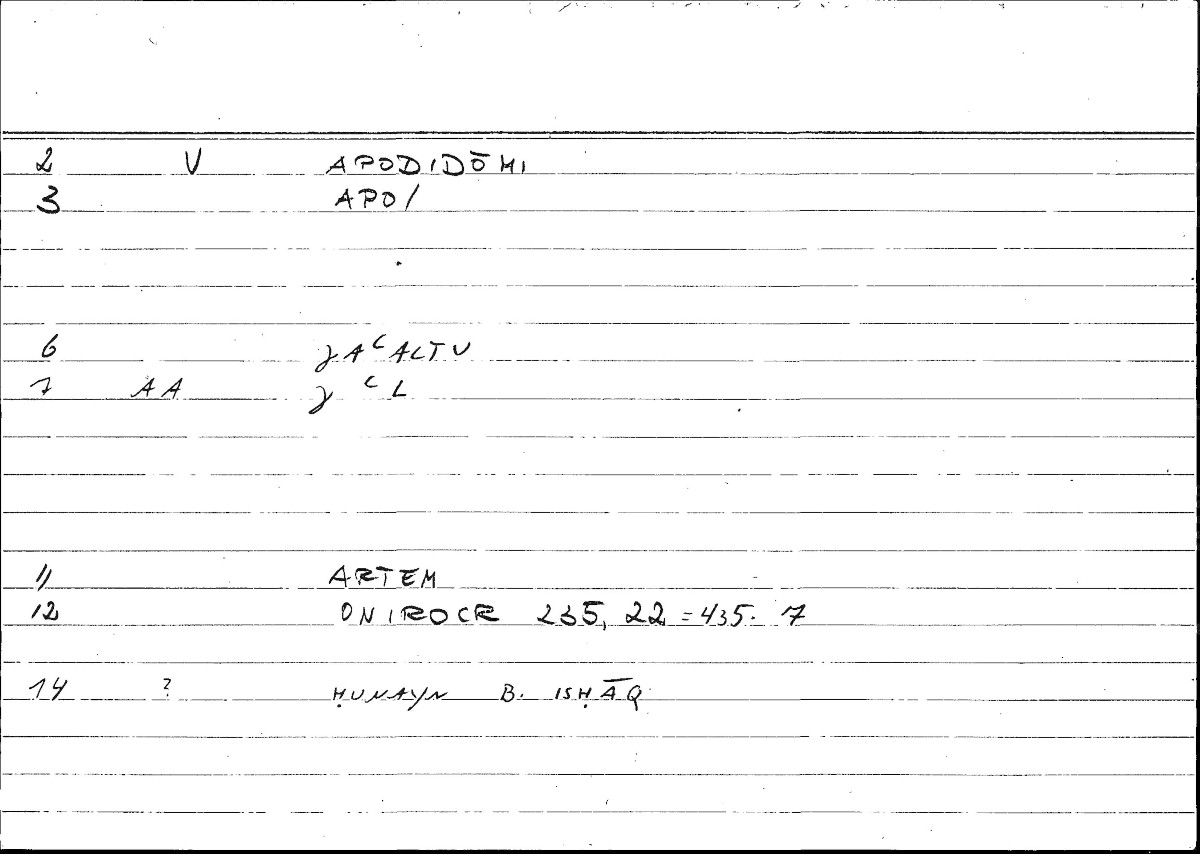 2 V APODIDŌMI
3 APO/
6 ʒAᶜALTU
7 AA ʒ ᶜ L
11 ARTEM
12 ONIROCR 235, 22 = 435. 7
14 ? ḤUNAYN B. ISḤĀQ